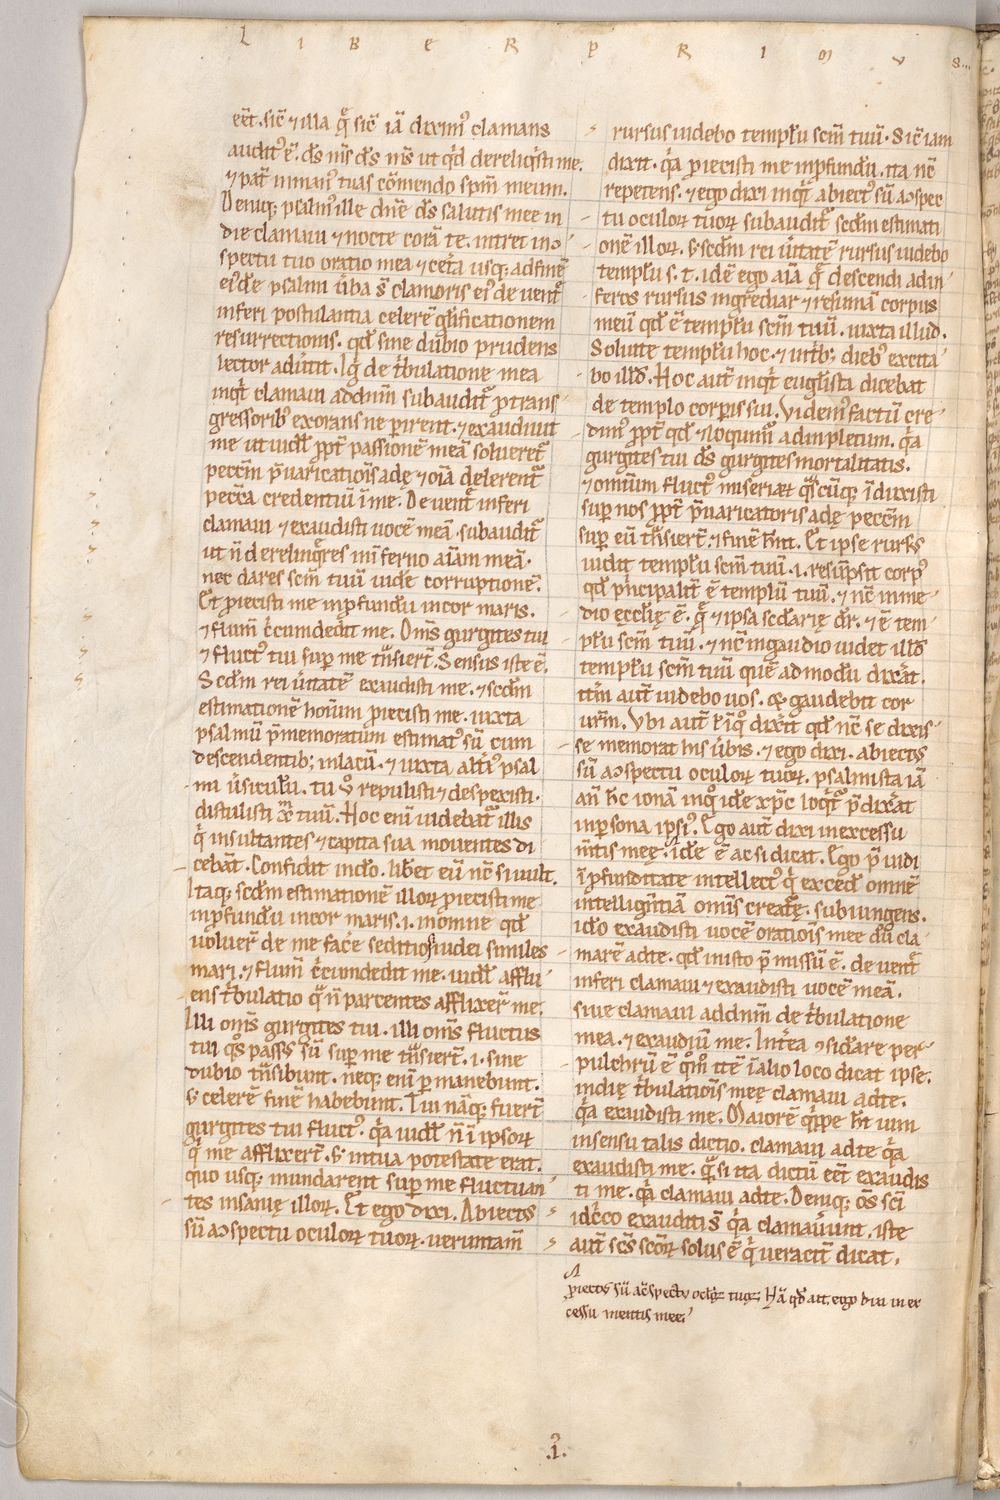 L I B E R P R I M V S
eēt. sic̄ ⁊ illa q̄ sic̄ iā diximꝰ clamans
auditꝰ ē. ds̄ ms̄ ds̄ ms̄ ut qͥd dereliqͥsti me.
⁊ pat̄ in manꝰ tuas cōmendo spm̄ meum.
Deniq; psalmꝰ ille dn̄e ds̄ salutis mee in
die clamaui ⁊ nocte corā te. intret in ɔ
spectu tuo oratio mea ⁊ cet̄a usq; ad finē
eiꝰdē psalmi ūba s̄ clamoris eiꝰ de uent̄
inferi postulantia celerē gl̄ificationem
resurrectionis. qd̄ sine dubio prudens
lector aduītit. Igͥ de t̄bulatione mea
inqͥt clamaui ad dn̄m subauditͣ ꝓ trans
gressoribꝰ exorans ne ꝑirent. ⁊ exaudiuit
me ut uidꝫ ꝓpt̄ passionē meā soluerētͣ
peccm̄ p̄uaricatiōis adę ⁊ oīa delerentͣ
pecc̄a credentiū ī me. De uent̄ inferi
clamaui ⁊ exaudisti uocē meā. subauditͣ
ut n̄ derelinqͥres in īferno aīam meā.
nec dares scm̄ tuū uide corruptionē.
Et ꝓiecisti me in ꝓfundū in cor maris.
⁊ flum̄ c̄cumdedit me. Om̄s gurgites tui
⁊ fluctꝰ tui suꝑ me tͣnsiert̄. Sensus iste ē.
Scdm̄ rei ūitatē exaudisti me. ⁊ scdm̄
estimationē hoīum ꝓiecisti me. iuxta
psalmū p̄memoratum estimatꝰ sū cum
descendentib; in lacū. ⁊ iuxta altīꝰ psal
mi ūsiculū. tu ū repulisti ⁊ despexisti.
distulisti xp̄m tuū. Hoc enī uidebatͣ illis
qͥ insultantes ⁊ capita sua mouentes di
cebāt. Confidit in dō. libet eū nc̄ si uult.
Itaq; scdm̄ estimationē illoꝝ ꝓiecisti me
in ꝓfundū in cor maris. .i. in om̄ne qd̄
uoluer̄ de me facē seditiosi iudei similes
mari. ⁊ flum̄ c̄cumdedit me. uidꝫ afflu
ens t̄bulatio qͣ n̄ parcentes afflixer̄ me.
Illi om̄s gurgites tui. illi om̄s fluctus
tui qͦs passꝰ sū suꝑ me tͣnsiert̄. .i. sine
dubio tͣnsibunt. neq; enī ꝑmanebunt.
s; celerē finē habebunt. Tui nāq; fuert̄
gurgites tui fluctꝰ. qͥa uidꝫ n̄ ī ipsoꝝ
qͥ me afflixert̄. s; in tua potestate erat.
quo usq; inundarent suꝑ me fluctuan
tes insanię illoꝝ. Et ego dixi. Abiectꝰ
sū a ɔspectu oculoꝝ tuoꝝ. ueruntam̄
rursus uidebo templū scm̄ tuū. Sic̄ iam
dixit. qͥa ꝓiecisti me in ꝓfundū. ita nc̄
repetens. ⁊ ego dixi inqͥt abiectꝰ sū a ɔspec
tu oculoꝝ tuoꝝ subauditͣ scdm̄ estimati
onē illoꝝ. s; scdm̄ rei ūitatē rursus uidebo
templū s. t. idē ego aīa q̄ descendi ad in
feros rursus ingrediar ⁊ resumā corpus
meū qd̄ ē templū scm̄ tuū. iuxta illud.
Soluite templū hoc. ⁊ in tͥb; diebꝰ excita
bo illd̄. Hoc aut̄ inqͥt eugl̄ista dicebat
de templo corꝑis sui. Videmꝰ factū cre
dimꝰ ꝓpt̄ qd̄ ⁊ loqͥmur adimpletum. qͥa
gurgites tui ds̄ gurgites mortalitatis.
⁊ omnium fluctꝰ miseriaꝝ qͣscūq; īduxisti
suꝑ nos ꝓpt̄ p̄uaricatoris adę peccm̄
suꝑ eū tͣnsiert̄. ⁊ finē hn̄t. Et ipse rursꝰ
uidit templū scm̄ tuū .i. resūpsit corpꝰ
qd̄ pͥncipalit̄ ē templū tuū. ⁊ nc̄ in me
dio ęcclię ē. q̄ ⁊ ipsa scd̄arię dr̄. ⁊ ē tem
plū scm̄ tuū. ⁊ nc̄ in gaudio uidet illd̄
templū scm̄ tuū quēadmodū dixāt.
itm̄ aut̄ uidebo uos. ⁊ gaudebit cor
urm̄. Vbi aut̄ dixit qd̄ nc̄ se dixis
se memorat his ūbis. ⁊ ego dixi. abiectꝰ
sū a ɔspectu oculoꝝ tuoꝝ. psalmista iā
an̄ hc̄ ionā inqͦ idē xp̄c loqͥtͣ p̄dixāt
in ꝑsona ipsiꝰ. Ego aut̄ dixi in excessu
m̄tis meę. idē ē ac si dicat. Ego p̄uidi
ī ꝓfunditate intellectꝰ qͥ excedꝫ omnē
intelligntiā om̄is creatͣę. subiungens.
idō exaudisti uocē oratiōis mee dū cla
marē ad te. qd̄ in isto p̄missū ē. de uent̄
inferi clamaui ⁊ exaudisti uocē meā.
siue clamaui ad dn̄m de t̄bulatione
mea. ⁊ exaudiū me. Int̄ea ɔsidārē per
pulchrū ē qm̄ itē ī alio loco dicat ipse.
in dię t̄bulatiōis meę clamaui ad te.
qͥa exaudisti me. Maiorē qͥppe ht̄ uim
in sensu talis dictio. clamaui ad te qͥa
exaudisti me. qͣ si ita dictū eēt exaudis
ti me. qͥa clamaui ad te. Deniq; om̄s sc̄i
idc̄co exauditi s̄ qͥa clamauunt. iste
aut̄ scs̄ scōꝝ solus ē qͥ ueracit̄ dicat.
ꝓiectꝰ sū a ɔspectu oclōꝝ tuoꝝ. Nā qd̄ ait. ego dixi in ex
cessu mentis mee.
.I.